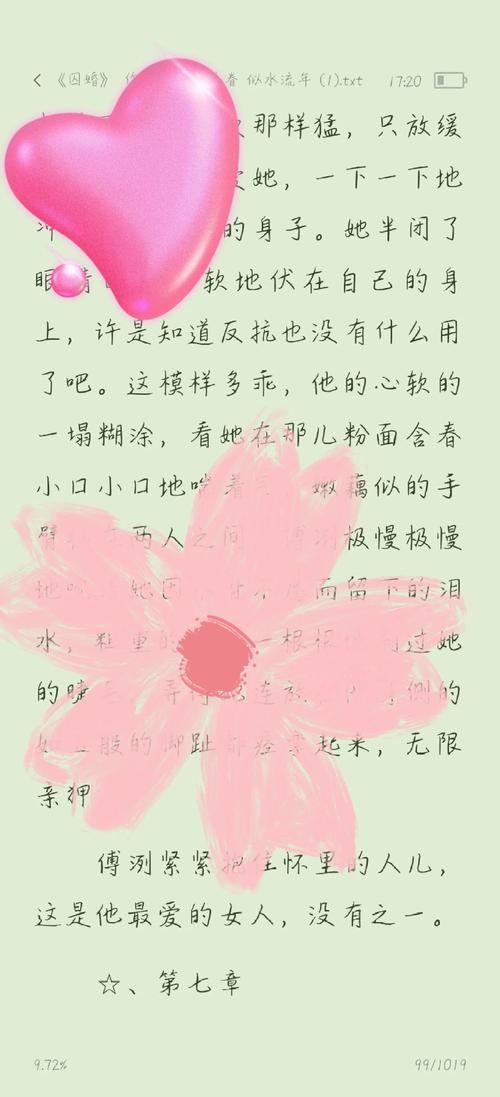 《囚婚》 春 似水流年 (1).txt 17:20
那样猛，只放缓
她，一下一下地
的身子。她半闭了
眼睛 软地伏在自己的身
上，许是知道反抗也没有什么用
了吧。这模样多乖，他的心软的
一塌糊涂，看她在那儿粉面含春
小口小口地喘着 嫩藕似的手
臂 两人之间 傅洌极慢极慢
地 她因 而留下的泪
水，粗重的 一根根地 过她
的睫 弄得 连放 侧的
般的脚趾都 起来，无限
亲狎
傅洌紧紧抱住怀里的人儿，
这是他最爱的女人，没有之一。
☆、第七章
9.72% 99/1019